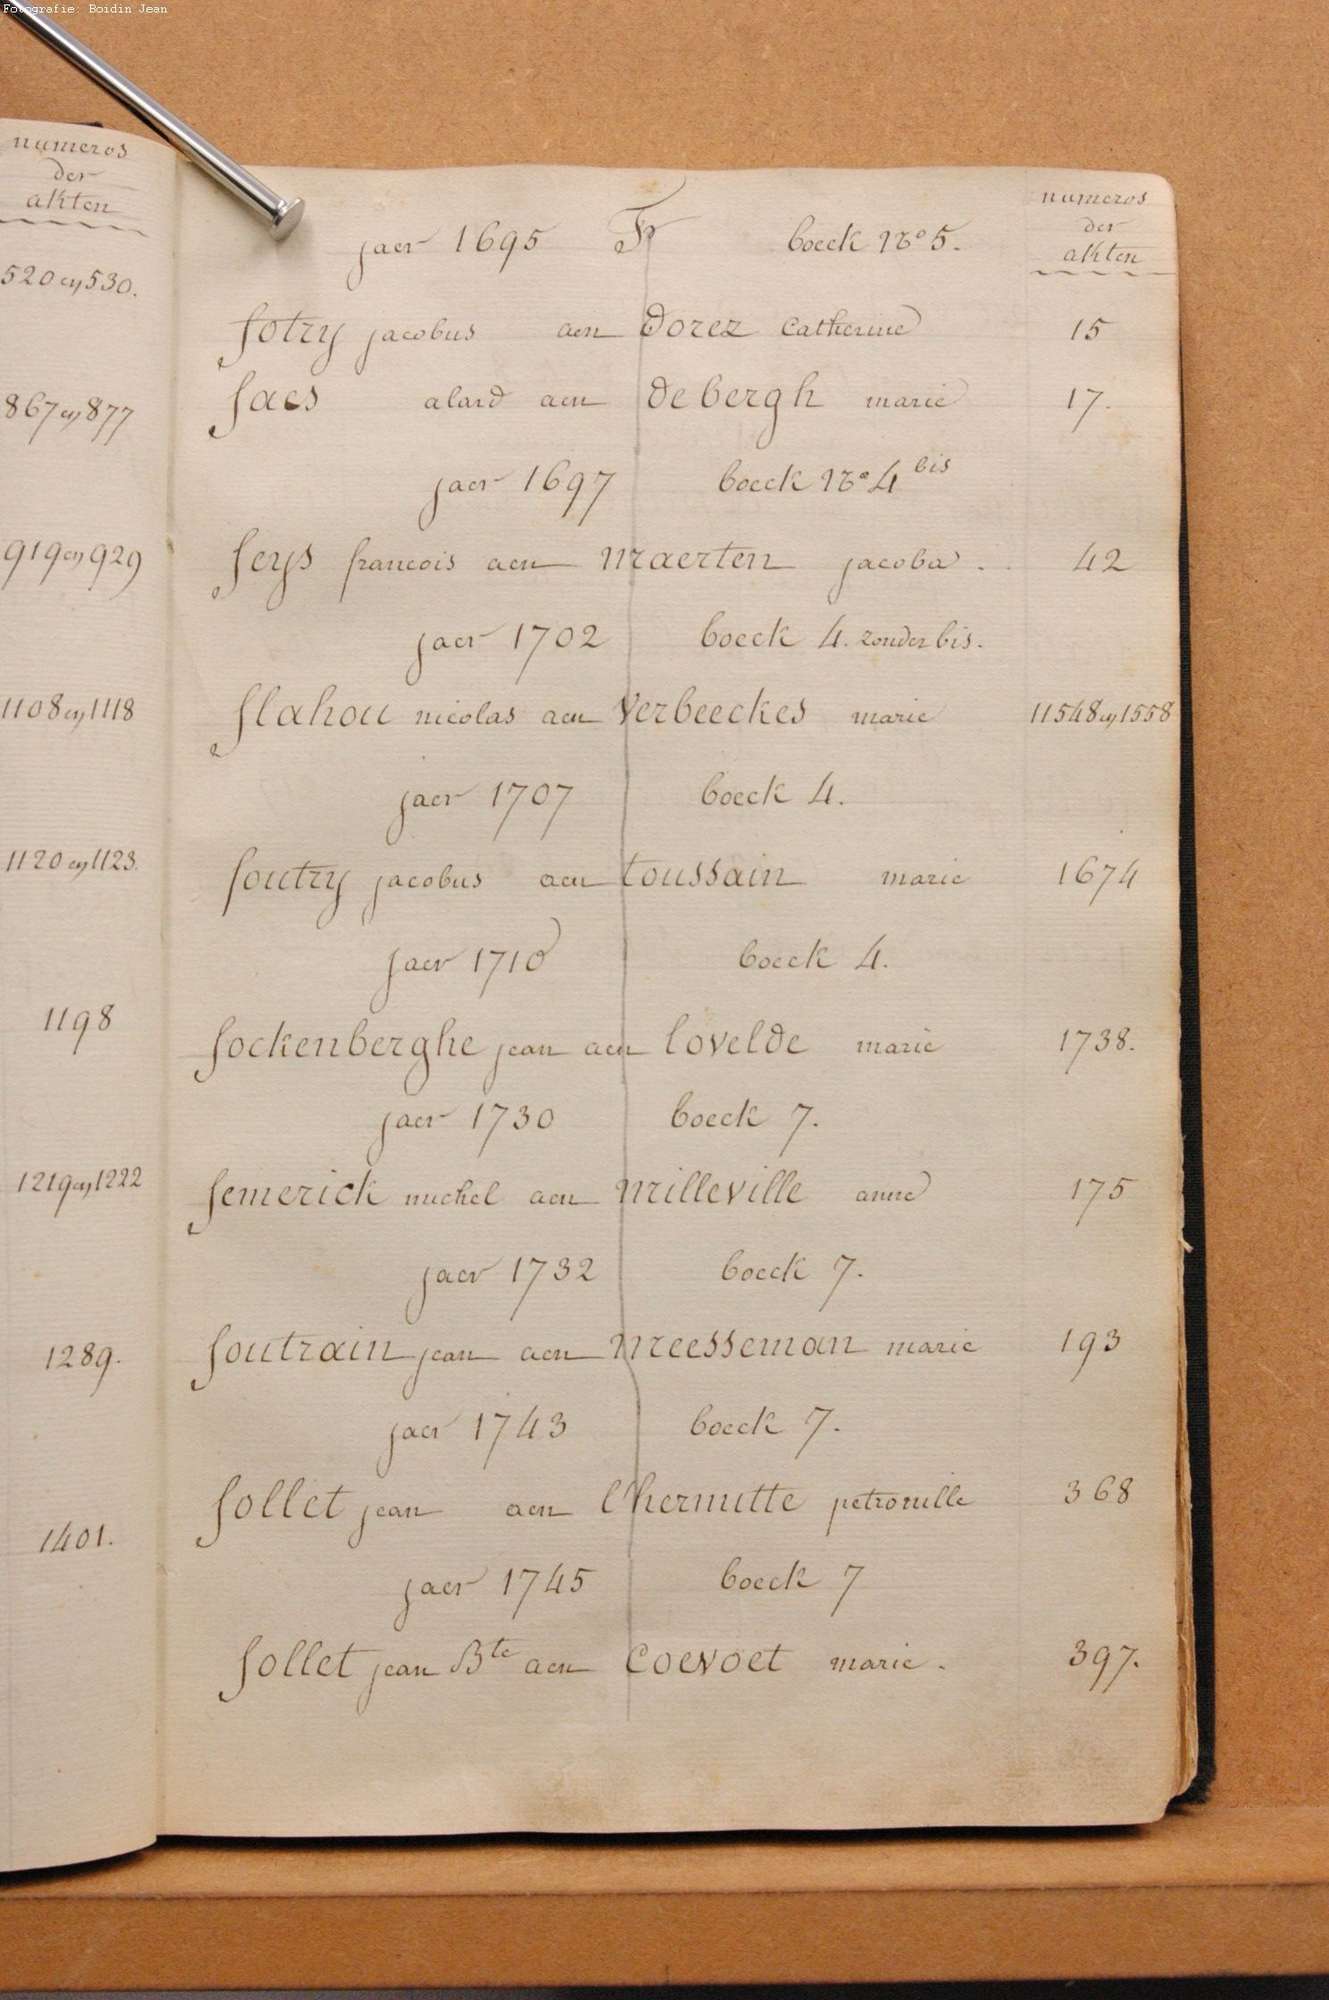 Fotografie: Boidin Jean
numeros
der
akten
520 en 530.
867 en 877
919 en 929
1108 en 1118
1120 en 1123.
1198
1219 en 1222
1289.
1401.
jaer 1695 F boeck No 5.
numeros
der
akten
fotry jacobus aen Dorez Catherine 15
faes alard aen De bergh marie 17.
jaer 1697 boeck No 4 bis
feys francois aen maerten jacoba. 42
jaer 1702 boeck 4. zonder bis.
flahou nicolas aen Verbeeckes marie 11548 en 1558
jaer 1707 boeck 4.
foutry jacobus aen toussain marie 1674
jaer 1710 boeck 4.
fockenberghe jean aen lovelde marie 1738.
jaer 1730 boeck 7.
femerick michel aen milleville anne 175
jaer 1732 boeck 7.
foutrain jean aen meesseman marie 193
jaer 1743 boeck 7.
follet jean aen l'hermitte petronille 368
jaer 1745 boeck 7
follet jean Bte aen Coevoet marie. 397.